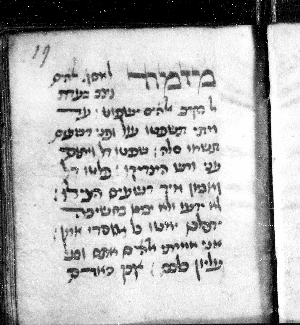 19
מזמור לאסף אלהים
נצב בעדת
אל בקרב אלהים ישפוט : עד
מתי תשפטו עול ופני רשעים
תשאו סלה : שפטו דל ויתום
עני ורש הצדיקו : פלטו דל
ואביון מיד רשעים הצילו :
לא ידעו ולא יבינו בחשיכה
יתהלכו ימוטו כל מוסדי ארץ :
אני אמרתי אלהים אתם ובני
עליון כלכם : אכן כאדם